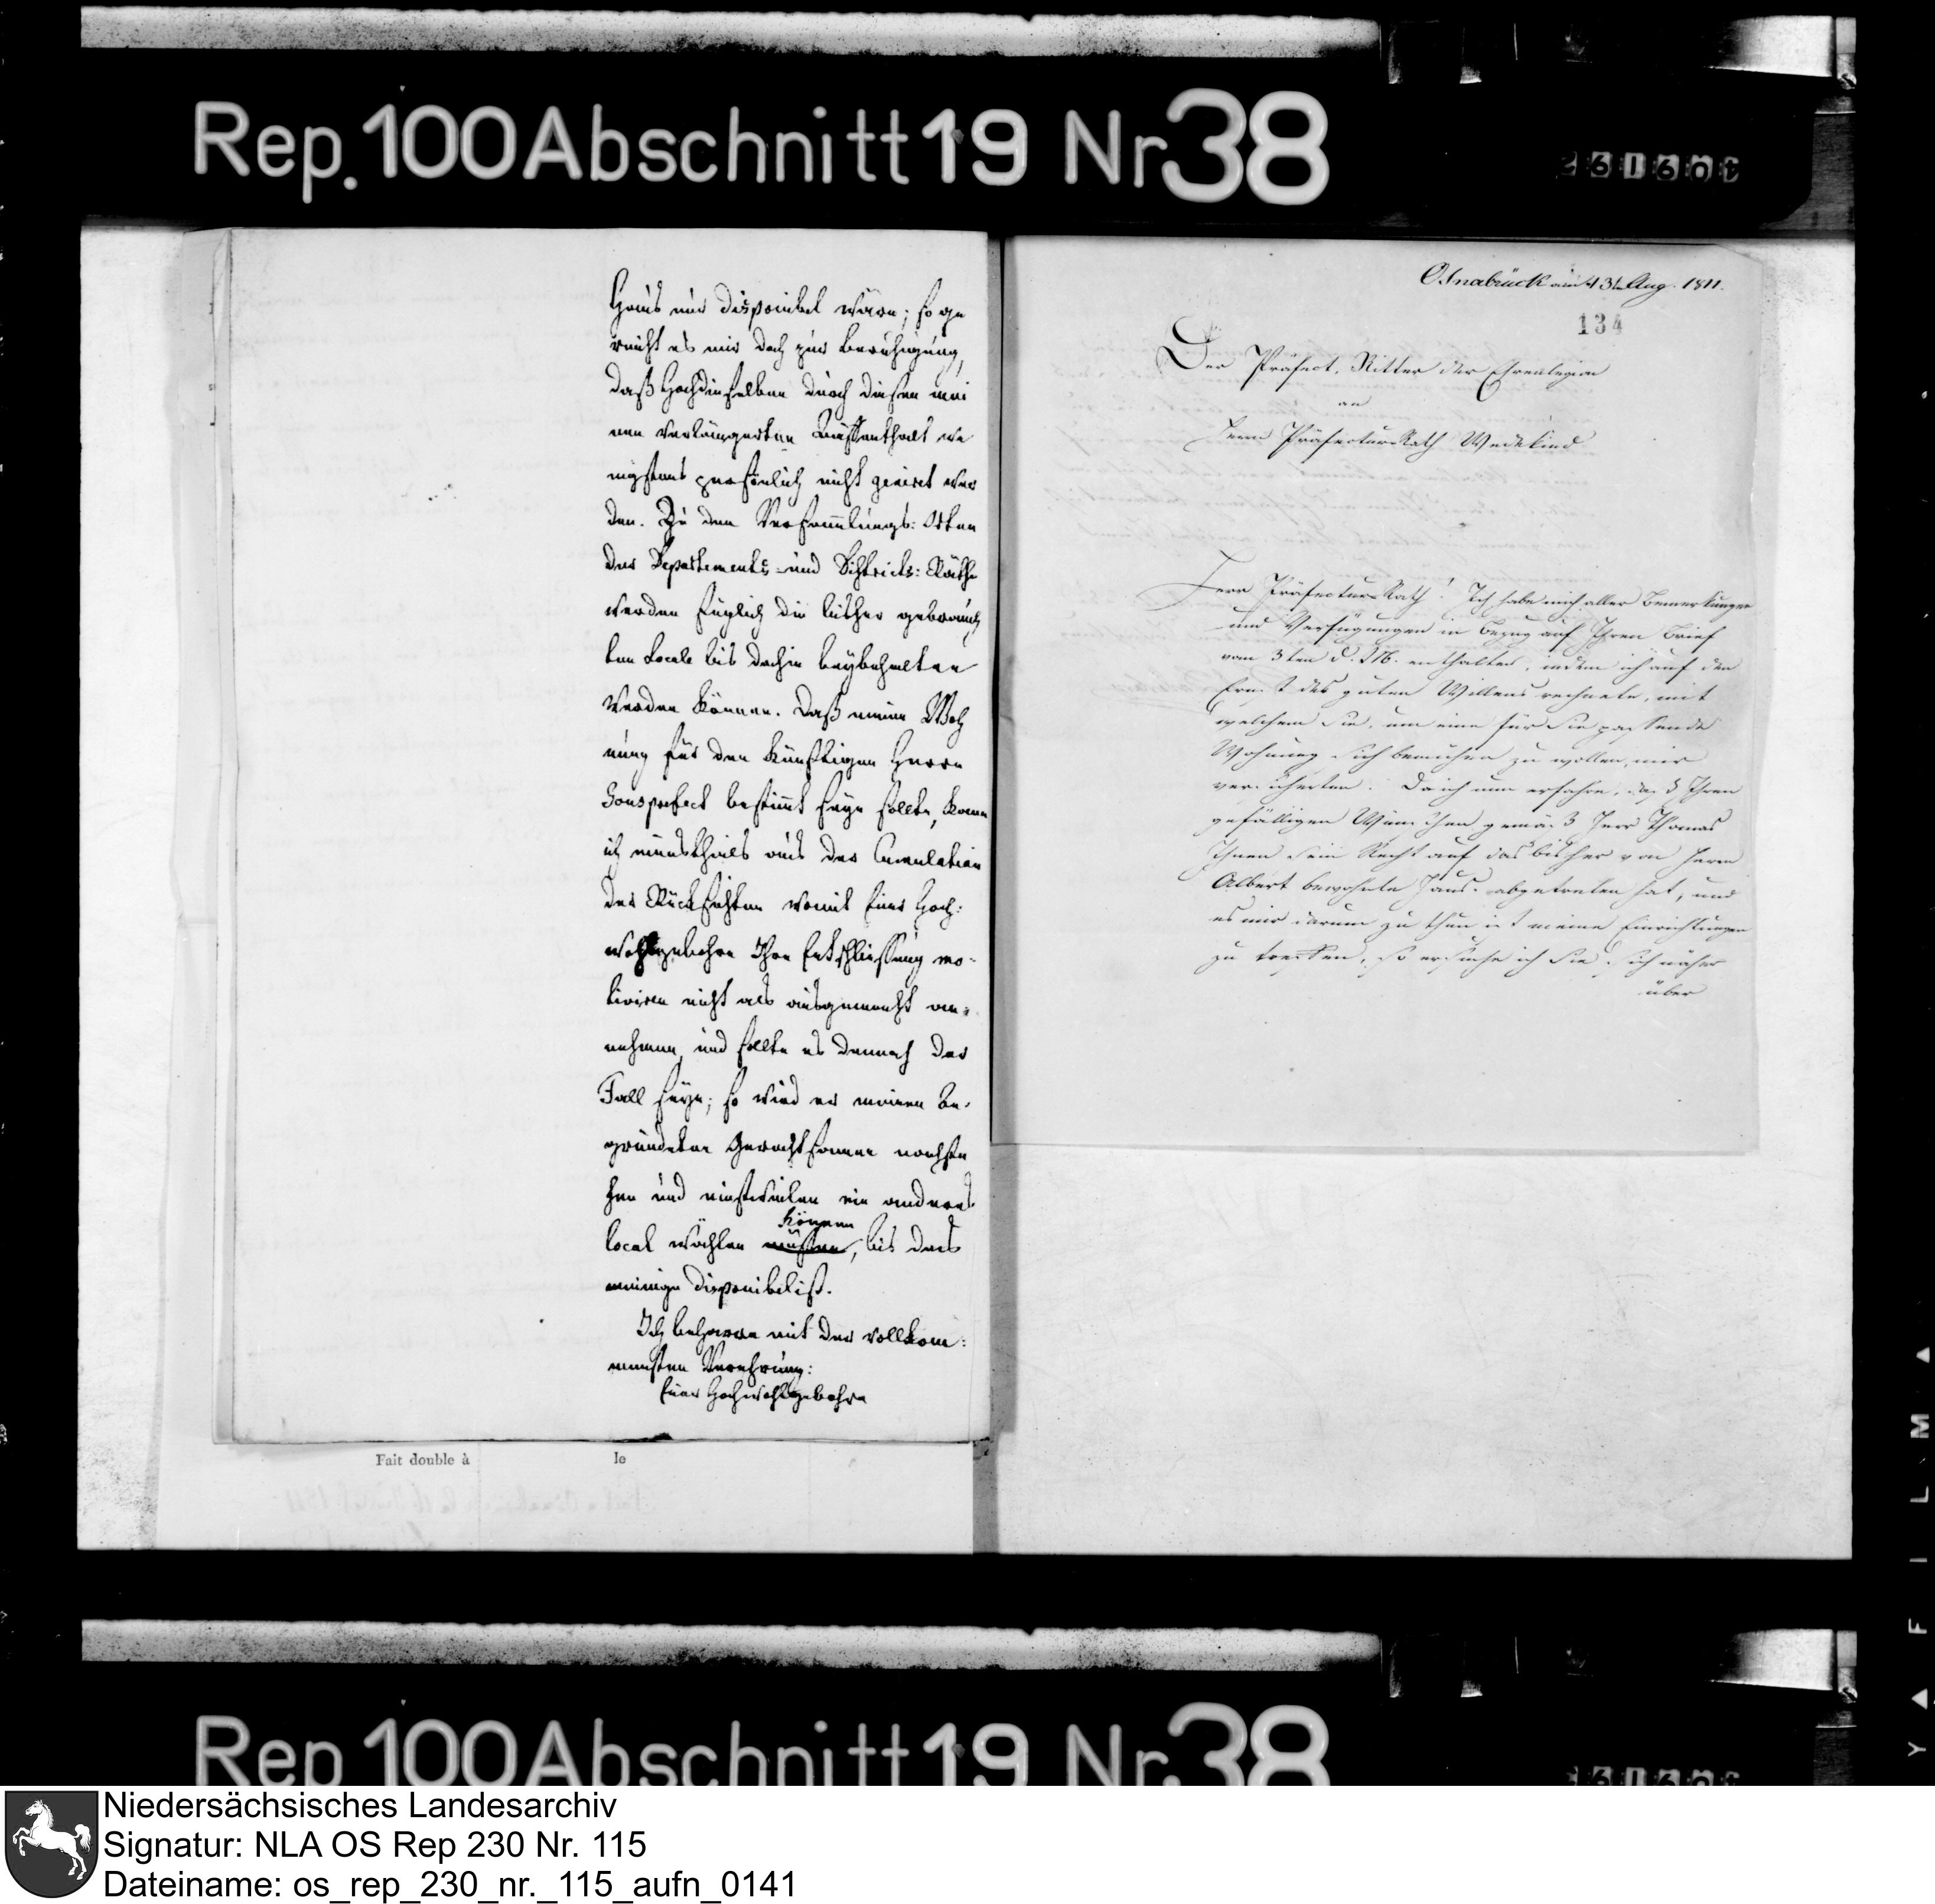 Rep. 100 Abschnitt 19 Nr 38
261601
Haus nur disponibel wäre; so ge
reicht es mir doch zur Beruhigung,
daß Hochdieselben durch diesen mei
nen verlängerten Aufenthalt we
nigstens persönlich nicht genirt wer
den. Zu den Versammlungs: Orten
der Departements und Districts: Räthe
werden füglich die bisher gebrauch
ten Locale bis dahin beybehalten
werden können. Daß meine Woh
nung für den künftigen Herrn
Souspréfect bestimt seyn sollte, kann
ich meinestheils aus der Cumulation
der Rücksichten womit Euer Hoch:
wohlgebohrn Ihre Entschliessung mo-
tiviren nicht als ausgemacht an-
nehmen, und sollte es dennoch der
Fall seyn; so wird er meinen be-
gründeten Gerechtsamen nachse
hen und einstweilen ein anderes
können
local wählen müssen, bis das
meinige disponibel ist.
Ich beharre mit der vollkom:
mensten Verehrung:
Euer Hochwohlgebohrn
Fait double à le
Osnabrück am 13ten Aug. 1811.
134
Der Präfect, Ritter der Ehrenlegion
an
Herrn Präfectur-Rath Wedekind
Herr Präfectur-Rath! Ich habe mich aller Bemerkungen
und Verfügungen in Bezug auf Ihren Brief
vom 3ten d. M. enthalten, indem ich auf den
Ernst des guten Willens rechnete, mit
welchem Sie, um eine für Sie passende
Wohnung sich bemühen zu wollen, mir
versicherten. Da ich nun erfahre, daß Ihren
gefälligen Wünschen gemäß Herr Thomas
Ihnen sein Recht auf das bisher von Herrn
Albert bewohnte Haus abgetreten hat, und
es mir darum zu thun ist meine Einrichtungen
zu treffen, so ersuche ich Sie, sich näher
über
Rep 100 Abschnitt 19 Nr. 38
Niedersächsisches Landesarchiv
Signatur: NLA OS Rep 230 Nr. 115
Dateiname: os_rep_230_nr._115_aufn_0141